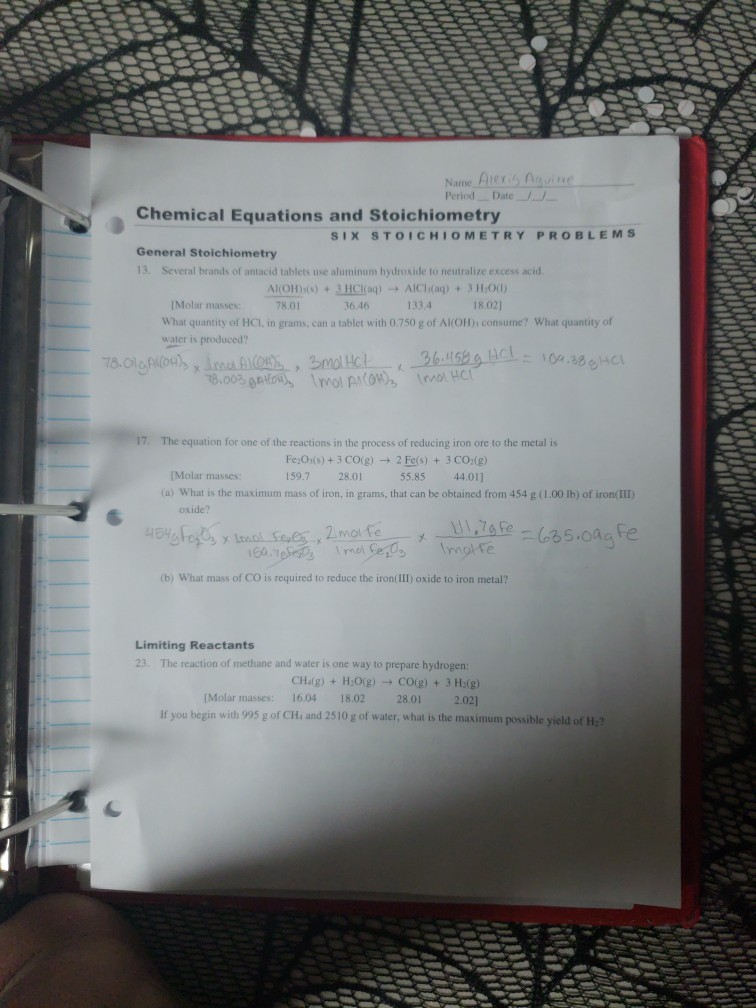 Name Alexis Aguirre
Period __ Date _/_/_
Chemical Equations and Stoichiometry
SIX STOICHIOMETRY PROBLEMS
General Stoichiometry
13. Several brands of antacid tablets use aluminum hydroxide to neutralize excess acid.
Al(OH)₃(s) + 3 HCl(aq) → AlCl₃(aq) + 3 H₂O(l)
[Molar masses: 78.01 36.46 133.4 18.02]
What quantity of HCl, in grams, can a tablet with 0.750 g of Al(OH)₃ consume? What quantity of
water is produced?
78.01g Al(OH)₃ x 1mol Al(OH)₃ / 78.003 g Al(OH)₃ x 3mol HCl / 1mol Al(OH)₃ x 36.458g HCl / 1mol HCl = 109.38g HCl
17. The equation for one of the reactions in the process of reducing iron ore to the metal is
Fe₂O₃(s) + 3 CO(g) → 2 Fe(s) + 3 CO₂(g)
[Molar masses: 159.7 28.01 55.85 44.01]
(a) What is the maximum mass of iron, in grams, that can be obtained from 454 g (1.00 lb) of iron(III)
oxide?
454g Fe₂O₃ x 1mol Fe₂O₃ / 159.7g Fe₂O₃ x 2mol Fe / 1mol Fe₂O₃ x 111.7g Fe / 1mol Fe = 635.09g Fe
(b) What mass of CO is required to reduce the iron(III) oxide to iron metal?
Limiting Reactants
23. The reaction of methane and water is one way to prepare hydrogen:
CH₄(g) + H₂O(g) → CO(g) + 3 H₂(g)
[Molar masses: 16.04 18.02 28.01 2.02]
If you begin with 995 g of CH₄ and 2510 g of water, what is the maximum possible yield of H₂?